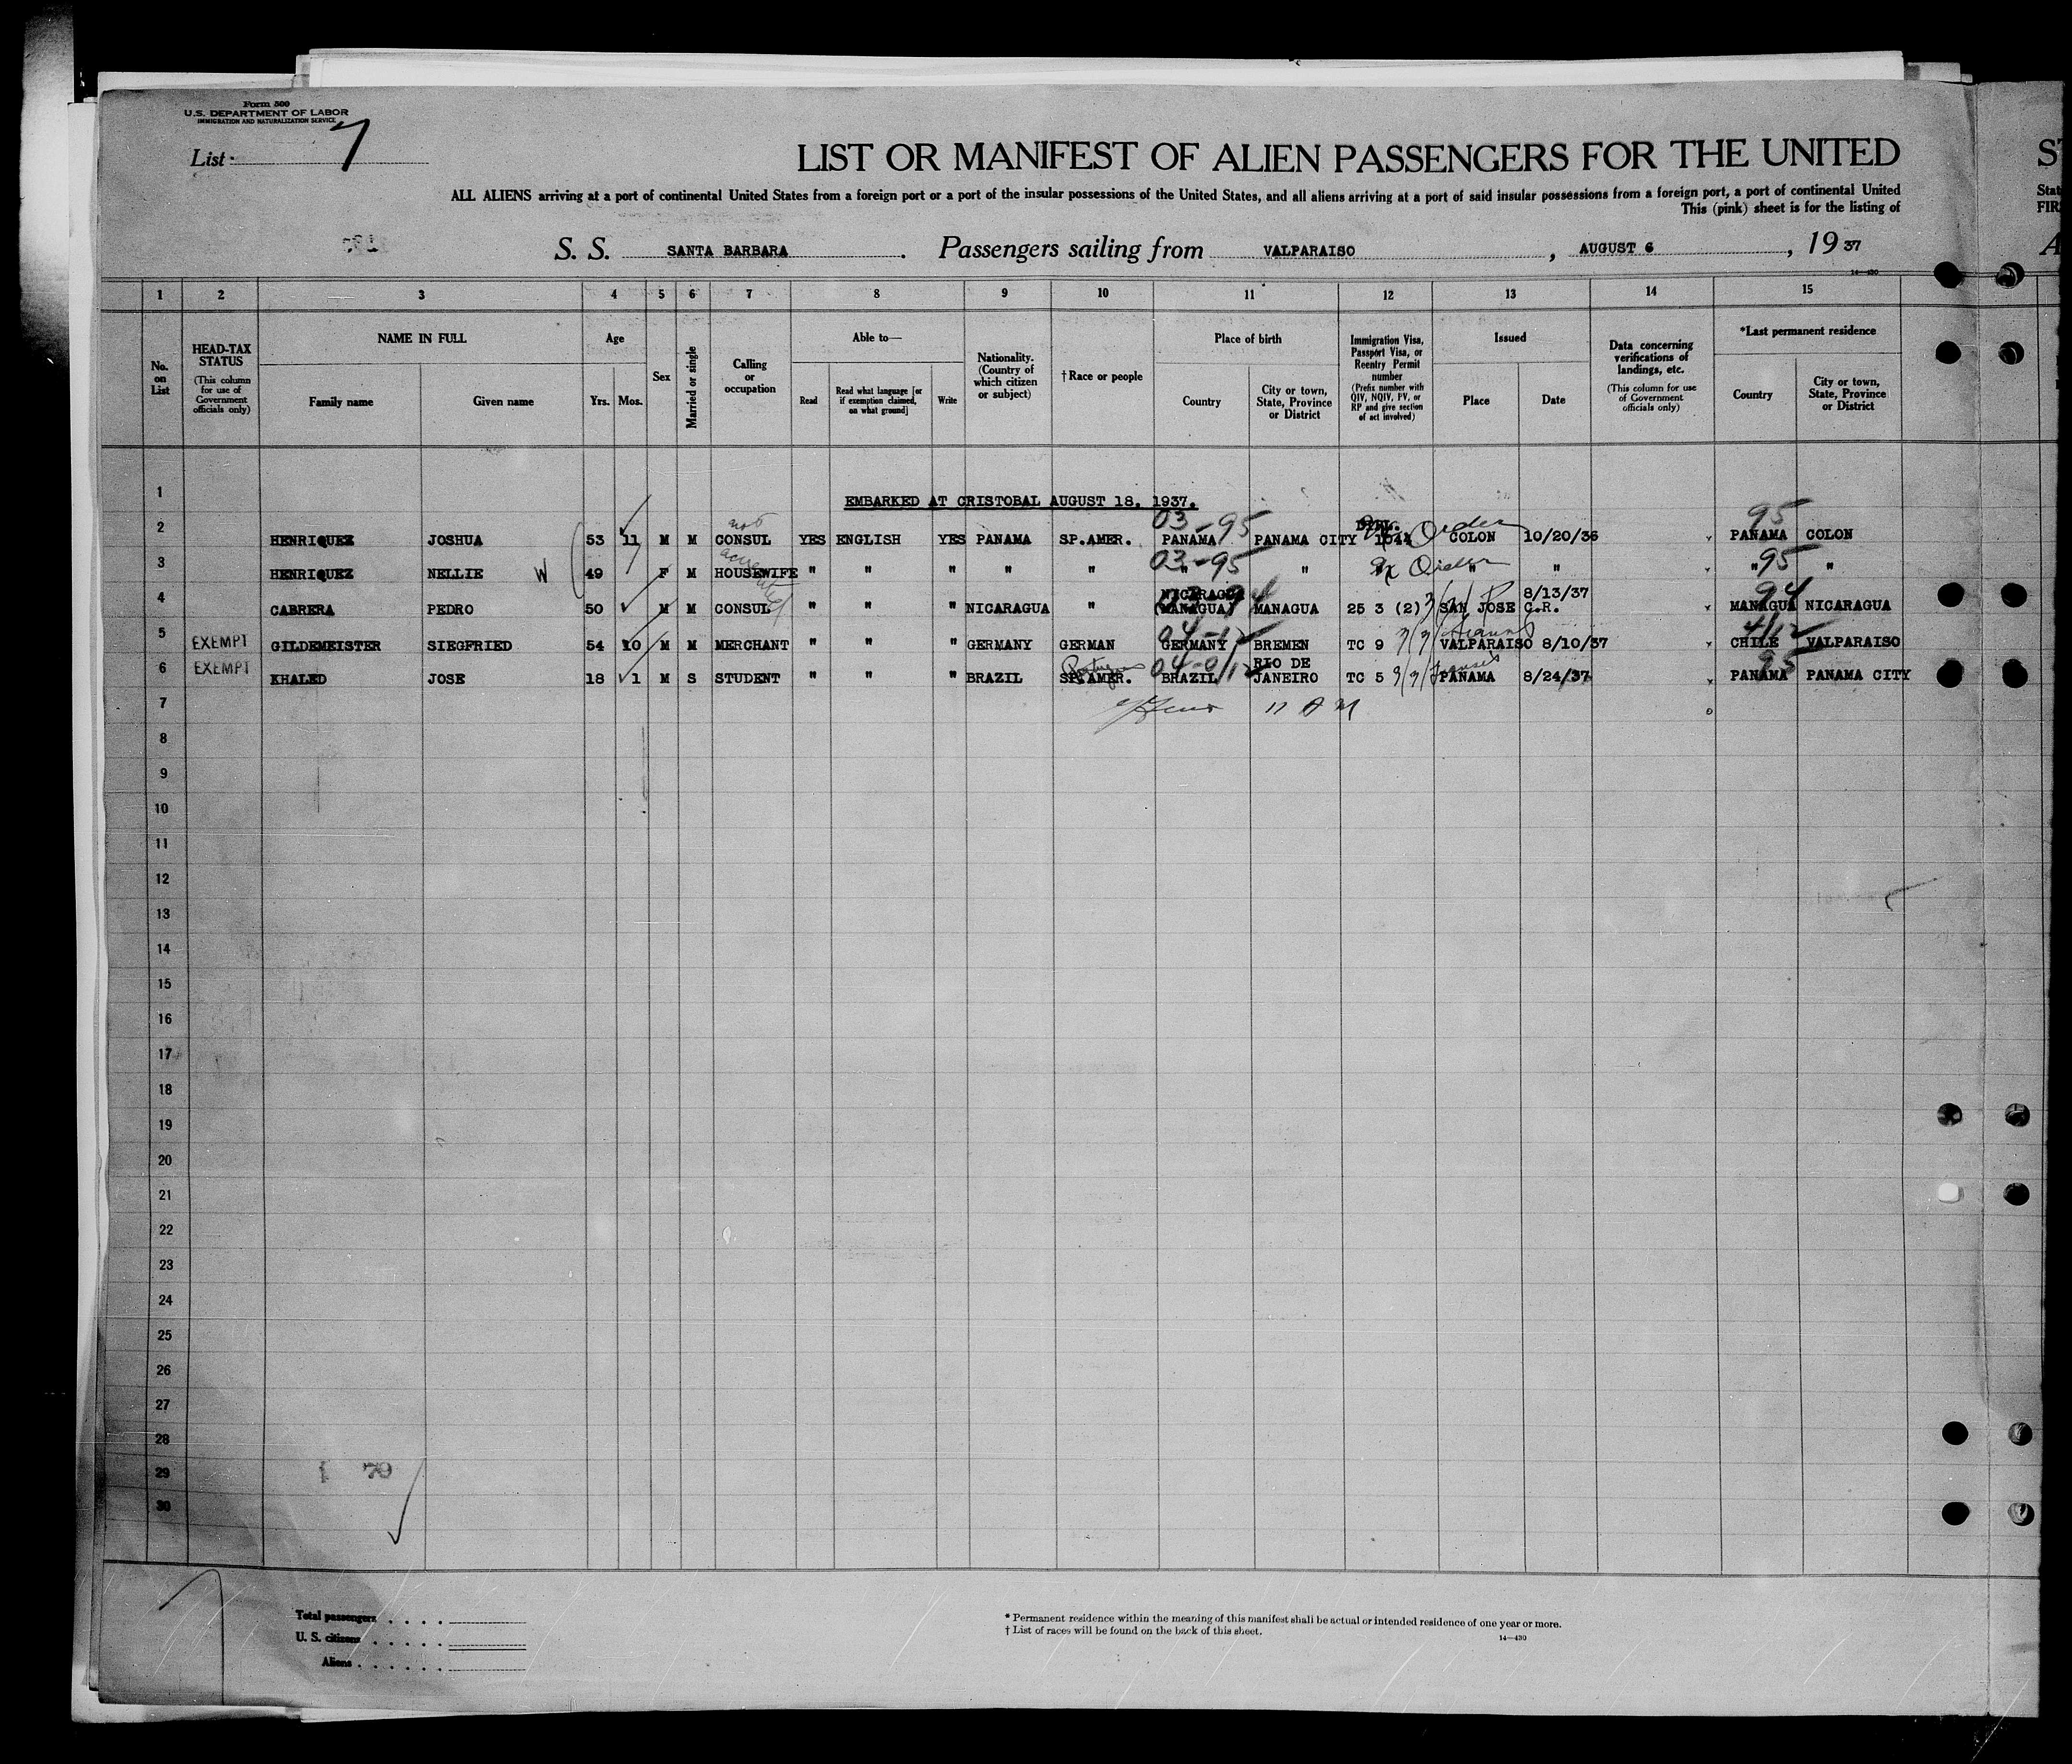 Form 500
U.S. DEPARTMENT OF LABOR
IMMIGRATION AND NATURALIZATION SERVICE
List 7
LIST OR MANIFEST OF ALIEN PASSENGERS FOR THE UNITED ST
ALL ALIENS arriving at a port of continental United States from a foreign port or a port of the insular possessions of the United States, and all aliens arriving at a port of said insular possessions from a foreign port, a port of continental United Stat
This (pink) sheet is for the listing of FIR
S. S. SANTA BARBARA. Passengers sailing from VALPARAISO, AUGUST 6, 19 37 A
14—430
1 2 3 4 5 6 7 8 9 10 11 12 13 14 15
No. on List
HEAD-TAX STATUS
(This column for use of Government officials only)
NAME IN FULL
Family name Given name
Age
Yrs. Mos.
Sex
Married or single
Calling or occupation
Able to—
Read
Read what language [or if exemption claimed, on what ground]
Write
Nationality. (Country of which citizen or subject)
†Race or people
Place of birth
Country
City or town, State, Province or District
Immigration Visa, Passport Visa, or Reentry Permit number
(Prefix number with QIV, NQIV, PV, or RP and give section of act involved)
Issued
Place Date
Data concerning verifications of landings, etc.
(This column for use of Government officials only)
*Last permanent residence
Country
City or town, State, Province or District
1
EMBARKED AT CRISTOBAL AUGUST 18. 1937.
not 03-95 Order 95
2 HENRIQUEZ JOSHUA 53 11 M M CONSUL YES ENGLISH YES PANAMA SP.AMER. PANAMA PANAMA CITY COLON 10/20/36 PANAMA COLON
accredited 03-95 Ex Order 95
3 HENRIQUEZ NELLIE W 49 F M HOUSEWIFE " " " " " " " " " " "
NICARAGUA 8/13/37 94
4 CABRERA PEDRO 50 M M CONSUL " " " NICARAGUA " (MANAGUA) MANAGUA 25 3 (2) 3/1/P SAN JOSE C.R. MANAGUA NICARAGUA
5 EXEMPT GILDEMEISTER SIEGFRIED 54 10 M M MERCHANT " " " GERMANY GERMAN GERMANY BREMEN TC 9 3/3/ VALPARAISO 8/10/37 CHILE VALPARAISO
Portuguese 04-0/12 RIO DE transit 95
6 EXEMPT KHALED JOSE 18 1 M S STUDENT " " " BRAZIL SP.AMER. BRAZIL JANEIRO TC 5 3/3/ PANAMA 8/24/37 PANAMA PANAMA CITY
7 11 AM
8
9
10
11
12
13
14
15
16
17
18
19
20
21
22
23
24
25
26
27
28
29 70
30
Total passengers
U. S. citizens
Aliens
* Permanent residence within the meaning of this manifest shall be actual or intended residence of one year or more.
† List of races will be found on the back of this sheet.
14—430